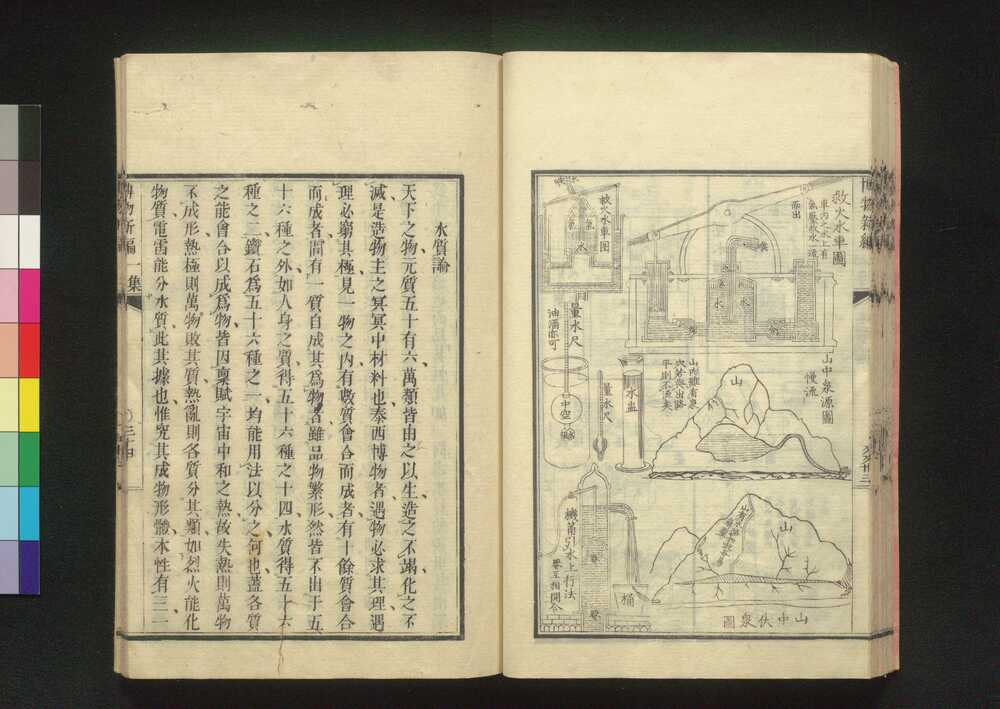 救火水車圖
車內之水上有
氣壓故水遠
而出
救火水車图
氣
水
水
水
山中泉源圖
慢流
山
山內雖有泉
量水尺
油酒亦可
中空
量水尺
水盅
山
山中伏泉圖
機筩引水上行法
桶
水質論
天下之物元質五十有六萬類皆由之以生造之不竭化之不
減是造物主之冥冥中材料也泰西博物者遇物必求其理遇
理必窮其極見一物之內有數質會合而成者有十餘質會合
而成者間有一質自成其爲物者雖品物繁形然皆不出于五
十六種之外如人身之質得五十六種之十四水質得五十六
種之二鑽石爲五十六種之一均能用法以分之何也蓋各質
之能會合以成爲物皆因稟賦宇宙中和之熱故失熱則萬物
不成形熱極則萬物敗其質熱亂則各質分其類如烈火能化
物質電雷能分水質此其據也惟究其成物形體本性有三一
博物新編一集
三十四